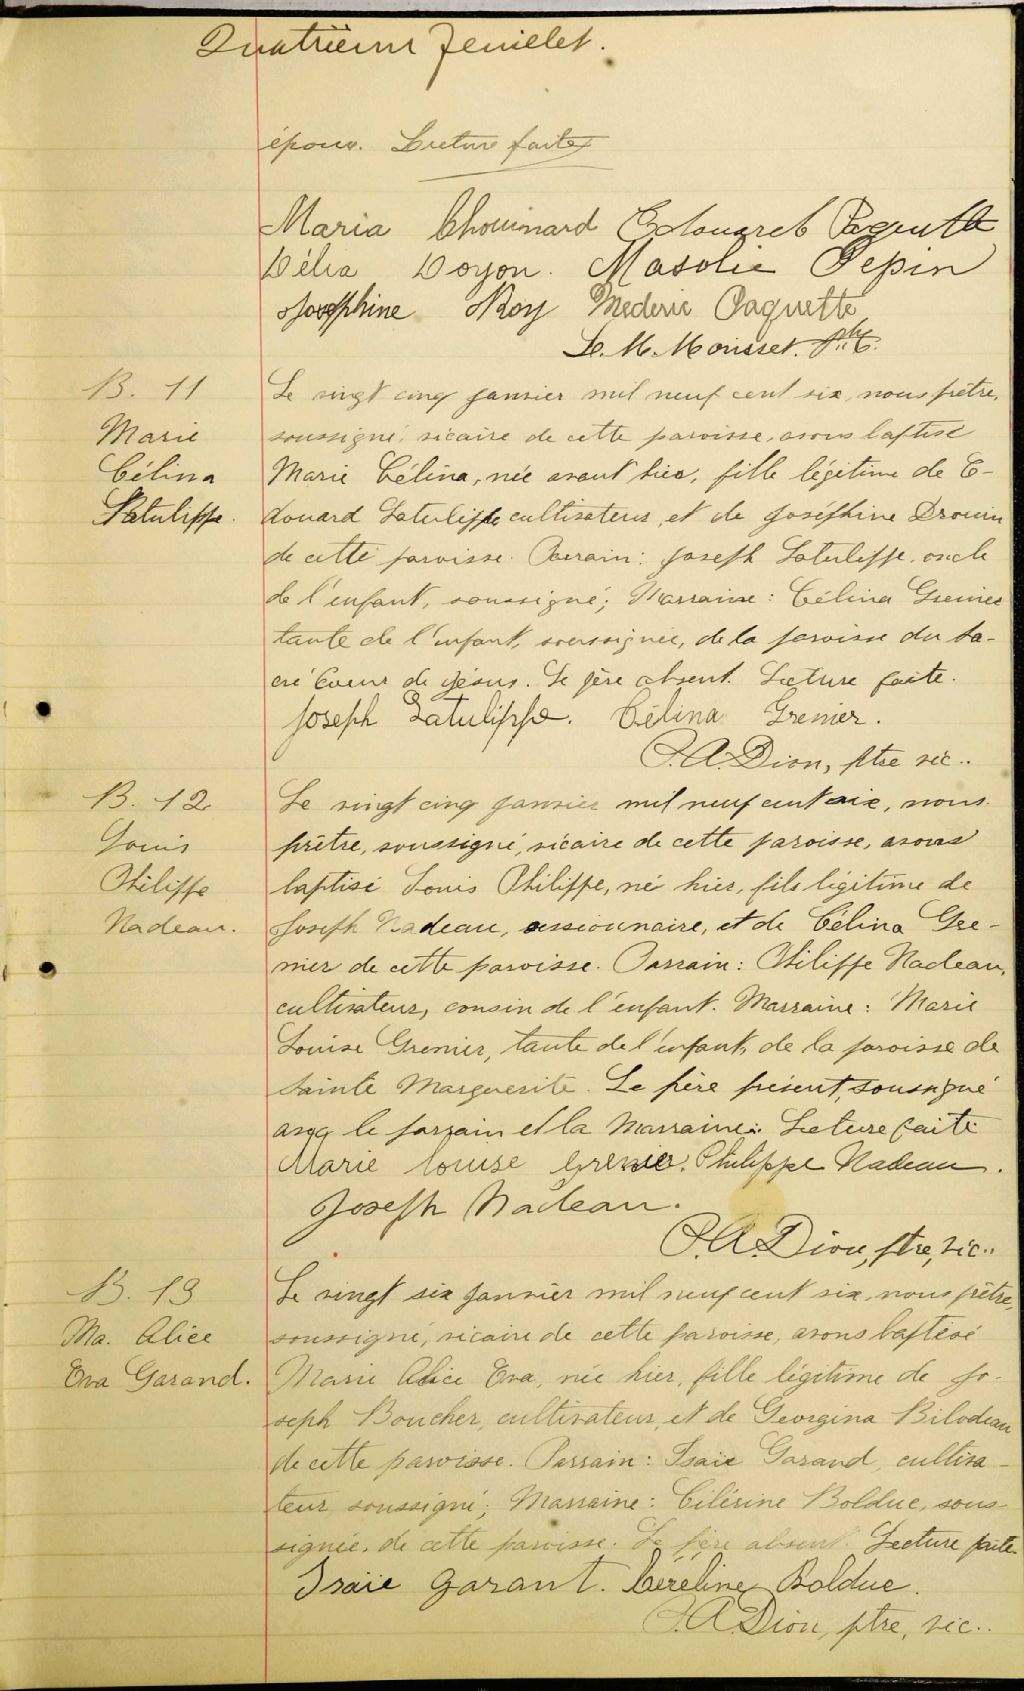 Quatrième feuillet.
époux. Lecture faite
Maria Chouinard Edouard Paquette
Délia Doyon. Masolie Pepin
Josephine Roy Mederic Paquette
Ptre.
B. 11
Marie
Célina
Latulippe.
Le vingt cinq janvier mil neuf cent six, nous prêtre,
soussigné, vicaire de cette paroisse, avons baptisé
Marie Célina, née avant hier, fille légitime de E-
douard Latulippe cultivateur, et de Joséphine Drouin
de cette paroisse. Parrain: Joseph Latulippe, oncle
de l'enfant, soussigné; Marraine: Célina Grenier
tante de l'enfant, soussignée, de la paroisse du Sa-
cré Coeur de Jésus. Le père absent. Lecture faite.
Joseph Latulippe. Célina Grenier.
P.A. Dion, ptre vic..
B. 12
Louis
Philippe
Nadeau.
Le vingt cinq janvier mil neuf cent six, nous
prêtre, soussigné, vicaire de cette paroisse, avons
baptisé Louis Philippe, né hier, fils légitime de
Joseph Nadeau, cessionnaire, et de Célina Gre-
nier de cette paroisse. Parrain: Philippe Nadeau,
cultivateur, cousin de l'enfant. Marraine: Marie
Louise Grenier, tante de l'enfant, de la paroisse de
Sainte Marguerite. Le père présent, soussigné
avec le parrain et la Marraine. Lecture faite
Marie Louise Grenier. Philippe Nadeau.
Joseph Nadeau.
P.A. Dion, ptre, vic..
B. 13
Ma. Alice
Eva Garand.
Le vingt six janvier mil neuf cent six, nous prêtre,
soussigné, vicaire de cette paroisse, avons baptisé
Marie Alice Eva, née hier, fille légitime de Jo-
seph Boucher, cultivateur, et de Georgina Bilodeau
de cette paroisse. Parrain: Isaïe Garand, cultiva-
teur soussigné; Marraine: Célérine Bolduc, sous-
signée, de cette paroisse. Le père absent. Lecture faite.
Isaïe Garant. Céreline Bolduc.
P.A. Dion, ptre, vic..